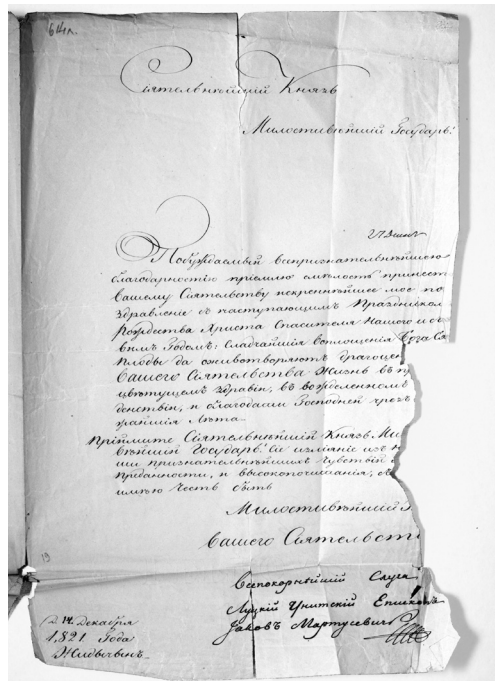 61л.
Сіятельнѣйшій Князь
Милостивѣйшій Государь!
Побуждаемый всепризнательнѣйшею
благодарностію пріемлю смѣлость принест
Вашему Сіятельству искреннѣйшее мое по
здравленіе съ наступающимъ Праздником
Рождества Христа Спасителя Нашого и съ
вымъ Годомъ: сладчайшія воплощенія Бога Сл
плоды да оживотворяютъ драгоцен
Вашего Сіятельства Жизнь въ
цвѣтущемъ здравіи, въ вожделенномъ
денствіи, и благодати Господней чрез
чайшія Лѣта.
Пріймите Сіятельнѣйшій Князь Ми
вѣйшій Государь! Сіе изліяніе изъ
ши признательнѣйшихъ Чувствій
преданности, и высокопочитанія, съ
имѣю Честь быть
Милостивѣйшій
Вашего Сіятельст
Всепокорнѣйшій Слуга
Луцкій Унитскій Епископъ
Іаковъ Мартусевичъ
19
Д 14. Декабря
1821 Года
Жидычинъ